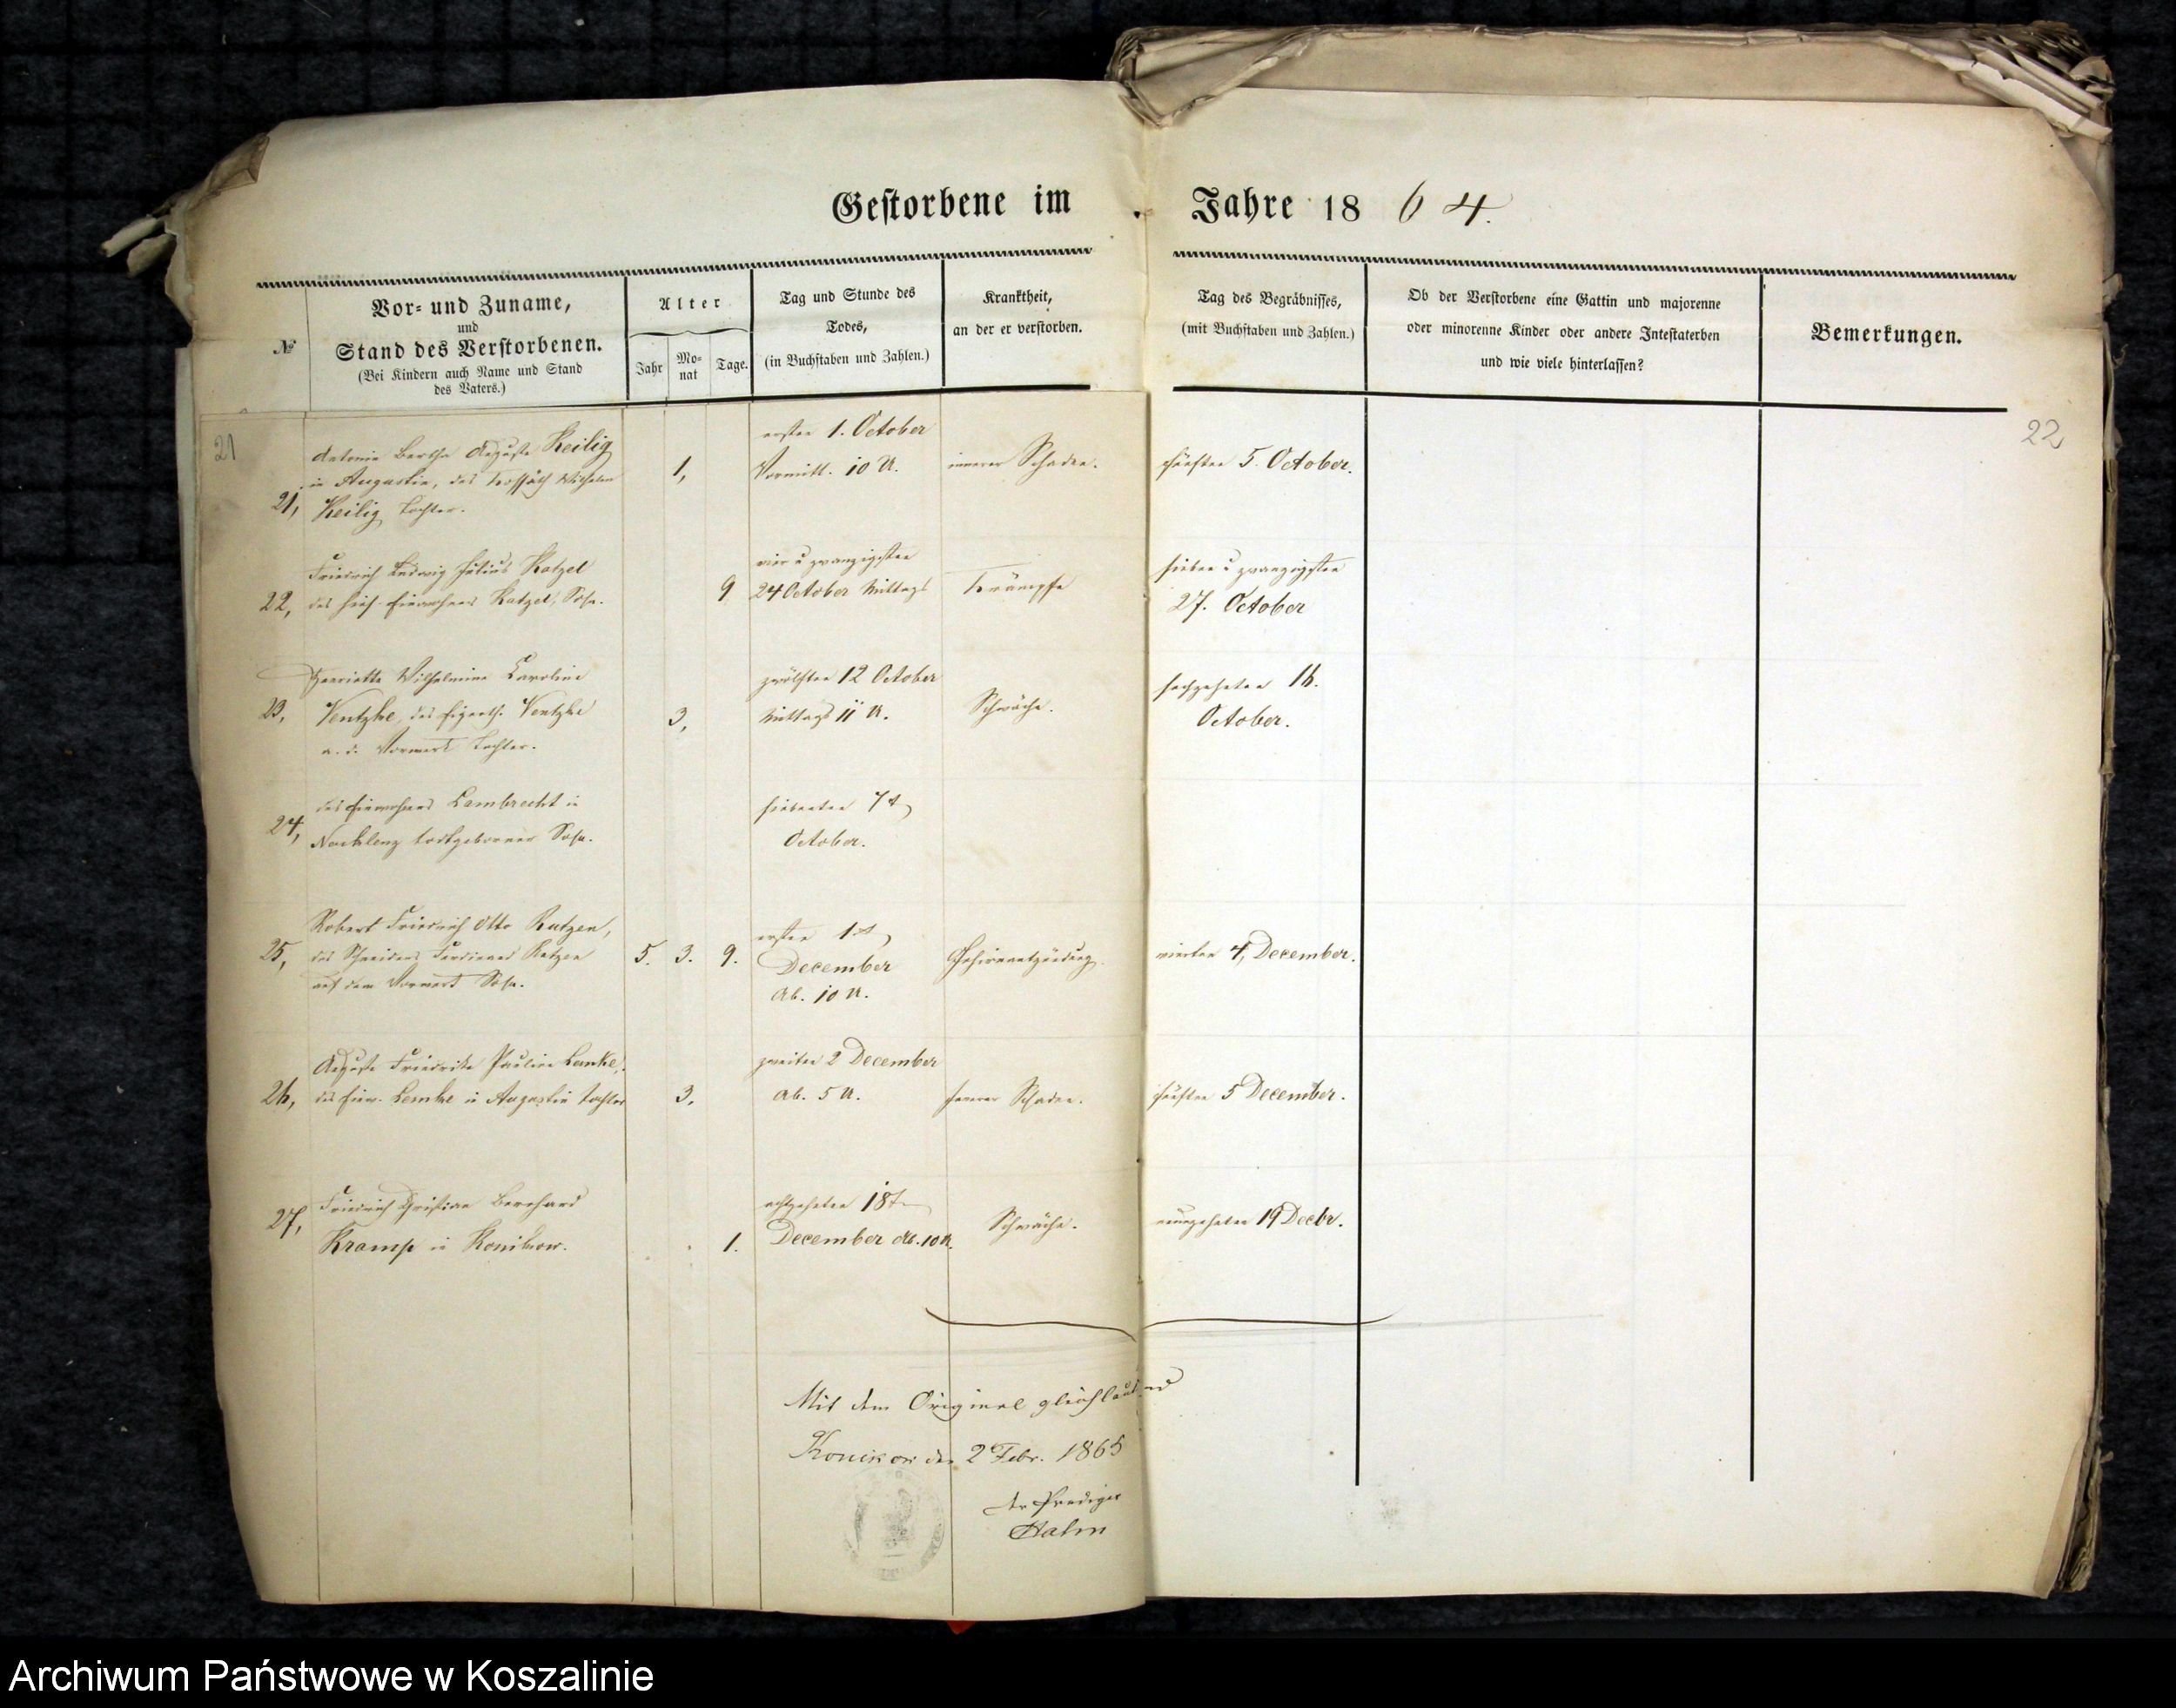 Gestorbene im Jahre 18 64.
№
Vor- und Zuname,
und
Stand des Verstorbenen.
(Bei Kindern auch Name und Stand
des Vaters.)
Alter
Jahr
Mo-
nat
Tage.
Tag und Stunde des
Todes,
(in Buchstaben und Zahlen.)
Krankheit,
an der er verstorben.
Tag des Begräbnisses,
(mit Buchstaben und Zahlen.)
Ob der Verstorbene eine Gattin und majorenne
oder minorenne Kinder oder andere Intestaterben
und wie viele hinterlassen?
Bemerkungen.
21
22
21,
Antonie Bertha Auguste Keilig
in Augustin, des Kossäth Wilhelm
Keilig Tochter.
1,
ersten 1. October
Vormitt. 10 U.
innerer Schaden.
fünften 5. October.
22,
Friedrich Ludwig Julius Katzel
des Einwohners Katzel, Sohn.
9
vier u zwanzigsten
24 October Mittags
Krämpfe
sieben u zwanzigsten
27. October
23,
Henriette Wilhelmine Caroline
Ventzke, des Eigenth. Ventzke
a. d. Vorwerk Tochter.
3,
zwölften 12 October
Mittags 11 U.
Schwäche.
sechzehnten 16.
October.
24,
des Einwohners Lambrecht in
todtgeborner Sohn.
siebenten 7t
October.
25,
Robert Friedrich Otto Rutzen,
des Schneiders Ferdinand Rutzen
auf dem Vorwerk Sohn.
5. 3. 9.
ersten 1t
December
Ab. 10 U.
Gehirnentzündung.
vierten 4, December.
26,
Auguste Friedrike Pauline Lemke,
des Einw. Lemke in Augustin Tochter
3.
zweiten 2 December
Ab. 5 U.
innerer Schaden.
fünften 5 December.
27,
Friedrich Christian Bernhard
Kramp in Konikow.
1.
achtzehnten 18t
December Ab. 10 U.
Schwäche.
neunzehnten 19 Decbr.
Mit dem Original gleichlautend
Konikow den 2 Febr. 1865
der Prediger
Archiwum Państwowe w Koszalinie